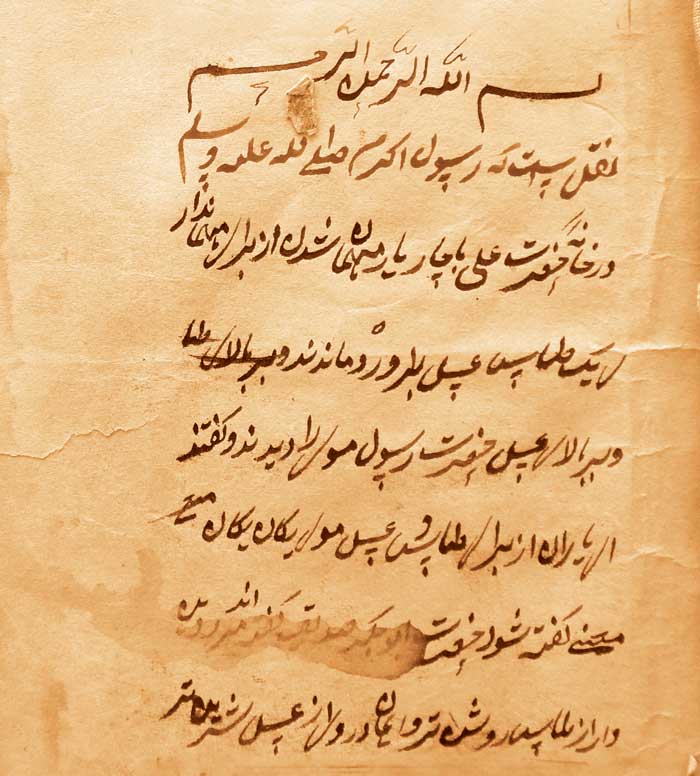 بسم الله الرحمن الرحیم
نقل است که رسول اکرم صلی الله علیه و سلم
در خانه حضرت علی با چار یار مهمان شدن از برای مهماندار
ی یک طاس عسل باورد و ماندند و بر بالای طا
و بر بالای عسل حضرت رسول موی را دیدند و گفتند
ای یاران از برای طاس و عسل موی یکان یکان
معنی گفته شود حضرت ابو بکر صدیق گفتند
دار از طاس روشن تر و ایمان در وی از عسل شیرین تر